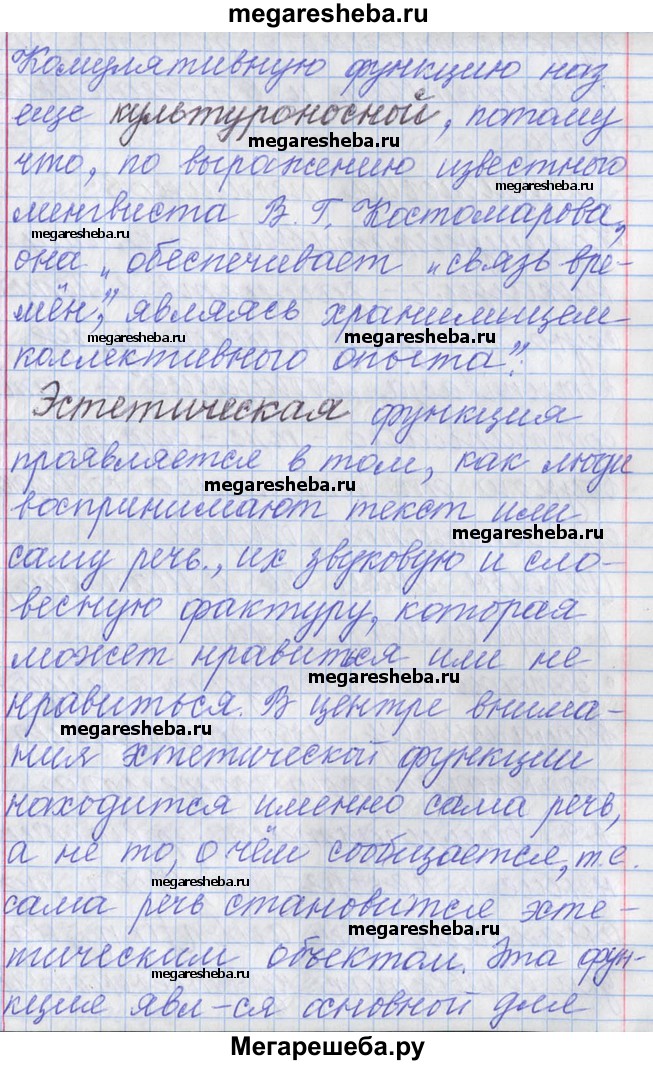 megaresheba.ru
Комулятивную функцию наз
еще культуроносной, потому
megaresheba.ru
что, по выражению известного
megaresheba.ru
лингвиста В. Г. Костомарова,
megaresheba.ru
она „обеспечивает „связь вре-
мён", являясь хранилищем
megaresheba.ru
megaresheba.ru
коллективного опыта".
Эстетическая функция
проявляется в том, как люди
megaresheba.ru
воспринимают текст или
megaresheba.ru
саму речь., их звуковую и сло-
весную фактуру, которая
может нравиться или не
megaresheba.ru
нравиться. В центре внима-
megaresheba.ru
ния эстетической функции
находится именно сама речь,
а не то, о чём сообщается, т.е.
megaresheba.ru
сама речь становится эсте-
megaresheba.ru
тическим объектом. Эта фун-
megaresheba.ru
кция явл-ся основной для
Мегарешеба.ру